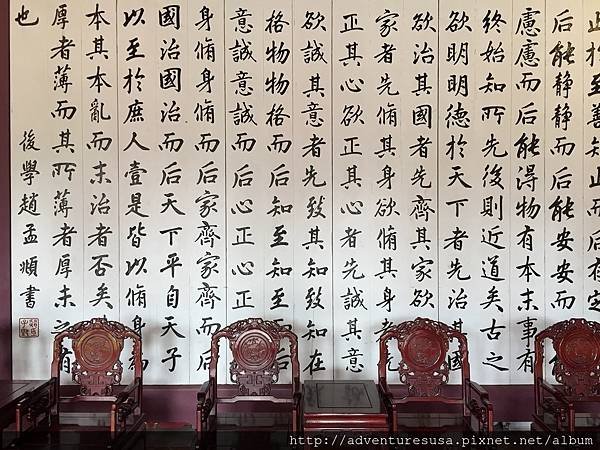 止於至善知止而后有定
后能静静而后能安安而
慮慮而后能得物有本末事有
終始知所先後則近道矣古之
欲明明德於天下者先治其國
欲治其國者先齊其家欲
家者先脩其身欲脩其身者先
正其心欲正其心者先誠其意
欲誠其意者先致其知致知在
格物物格而后知至知至而后
意誠意誠而后心正心正
身脩身脩而后家齊家齊而后
國治國治而后天下平自天子
以至於庶人壹是皆以脩身為
本其本亂而末治者否矣
厚者薄而其所薄者厚未之有
也 後學趙孟頫書
http://adventuresusa.pixnet.net/album